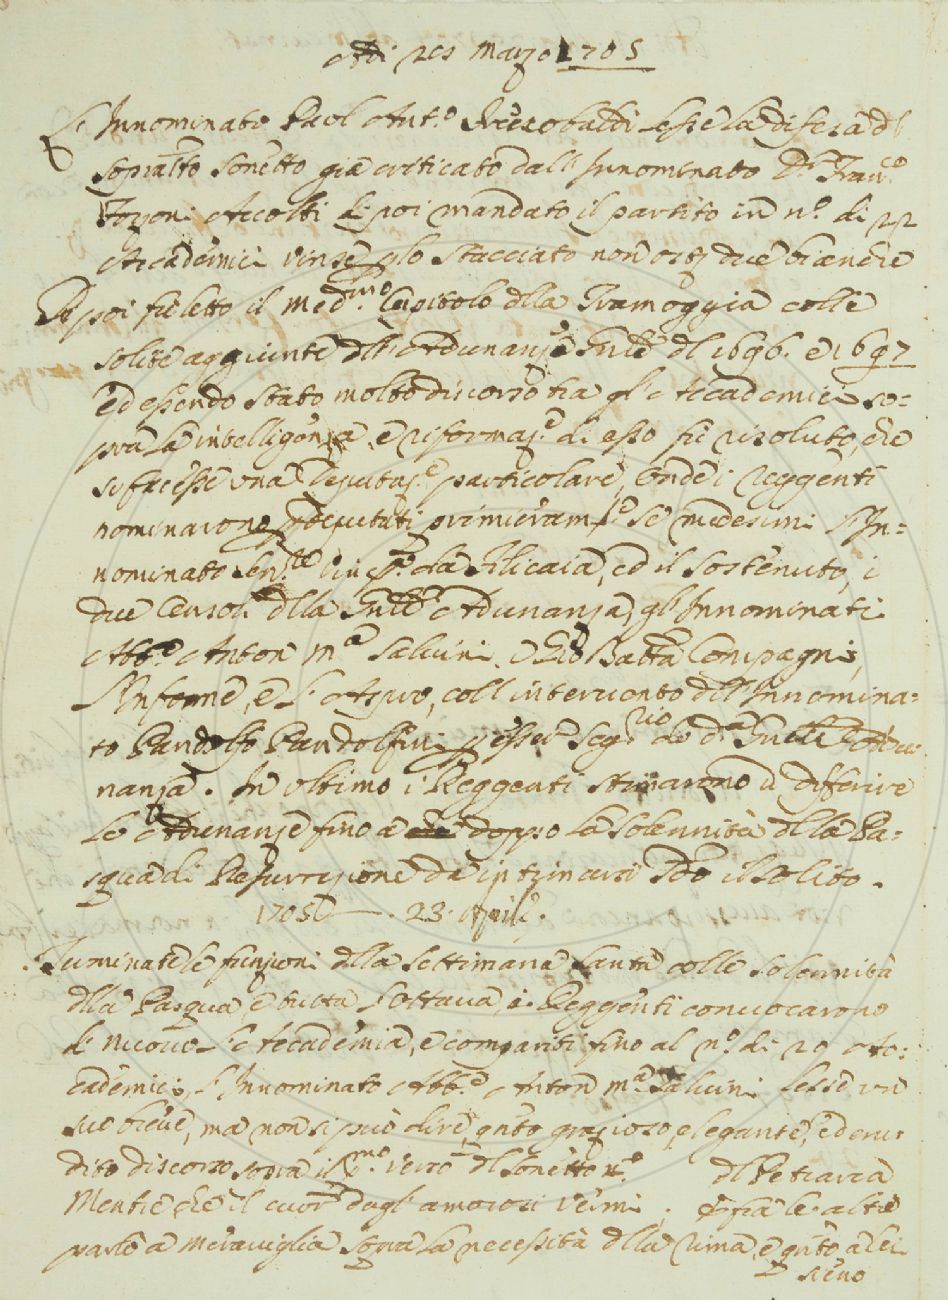 Adi 26 Marzo 1705
L'Innominato Paol Ant.º lesse la difesa d'l
sopradto Sonetto già criticato dall'Innominato Dr. Franc.º
Forzoni Accolti di poi mandato il partito in nº. di 22
Accademici vinse p lo stacciato non ost due bianche
Di poi fu letto il med.mo Capitolo dlla Tramoggia colle
solite aggiunte dll'Adunanze dl 1696. e 1697
ed essendo stato molto discorso tra gl'Accademici so=
pra la intelligenza, e riformaz.e di esso fù risoluto, che
si facesse una Deputaz.e particolare, onde i Reggenti
nominarono p deputati primieram.te se medesimi l'In=
nominato Sen.re Vinc.º da Filicaia, ed il Sostenuto, i
due Censori dlla Adunanza, gl'Innominati
Abb.e Anton M.a Salvini, e Gio Batta Compagni,
l'Infarine, e l' coll'intervento dll'Innomina=
to Pandolfo Pandolfini p esser Seg.rio de d.a Adu=
nanza. In ultimo i Reggenti stimarono di differire
le Adunanze fino a doppo la solennità dlla Pa=
squa di Resurrezione da intimarsi sdo il solito.
1705 — . 23. Aprile.
Terminate le funzioni dlla Settimana Santa colle solennità
dlla Pasqua, e tutta l'ottava, i Reggenti convocarono
di nuovo l'Accademia, e compariti fino al nº. di 29 Ac=
cademici, l'Innominato Abb.e Anton M.a Salvini lesse un
suo breve, ma non si può dire, qnto grazioso, elegante, ed eru
dito discorso sopra il p.mo verso dl Sonetto dl Petrarca
Mentre che il cuor dagl'amorosi vermi; e frà le altre
parlò a meraviglia sopra la necessità dlla rima, e qnto a lei
sieno